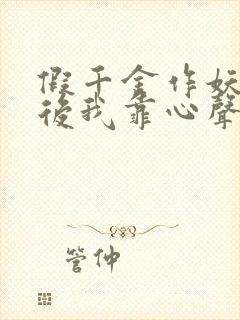 假千金作妖
後我靠心聲
管仲